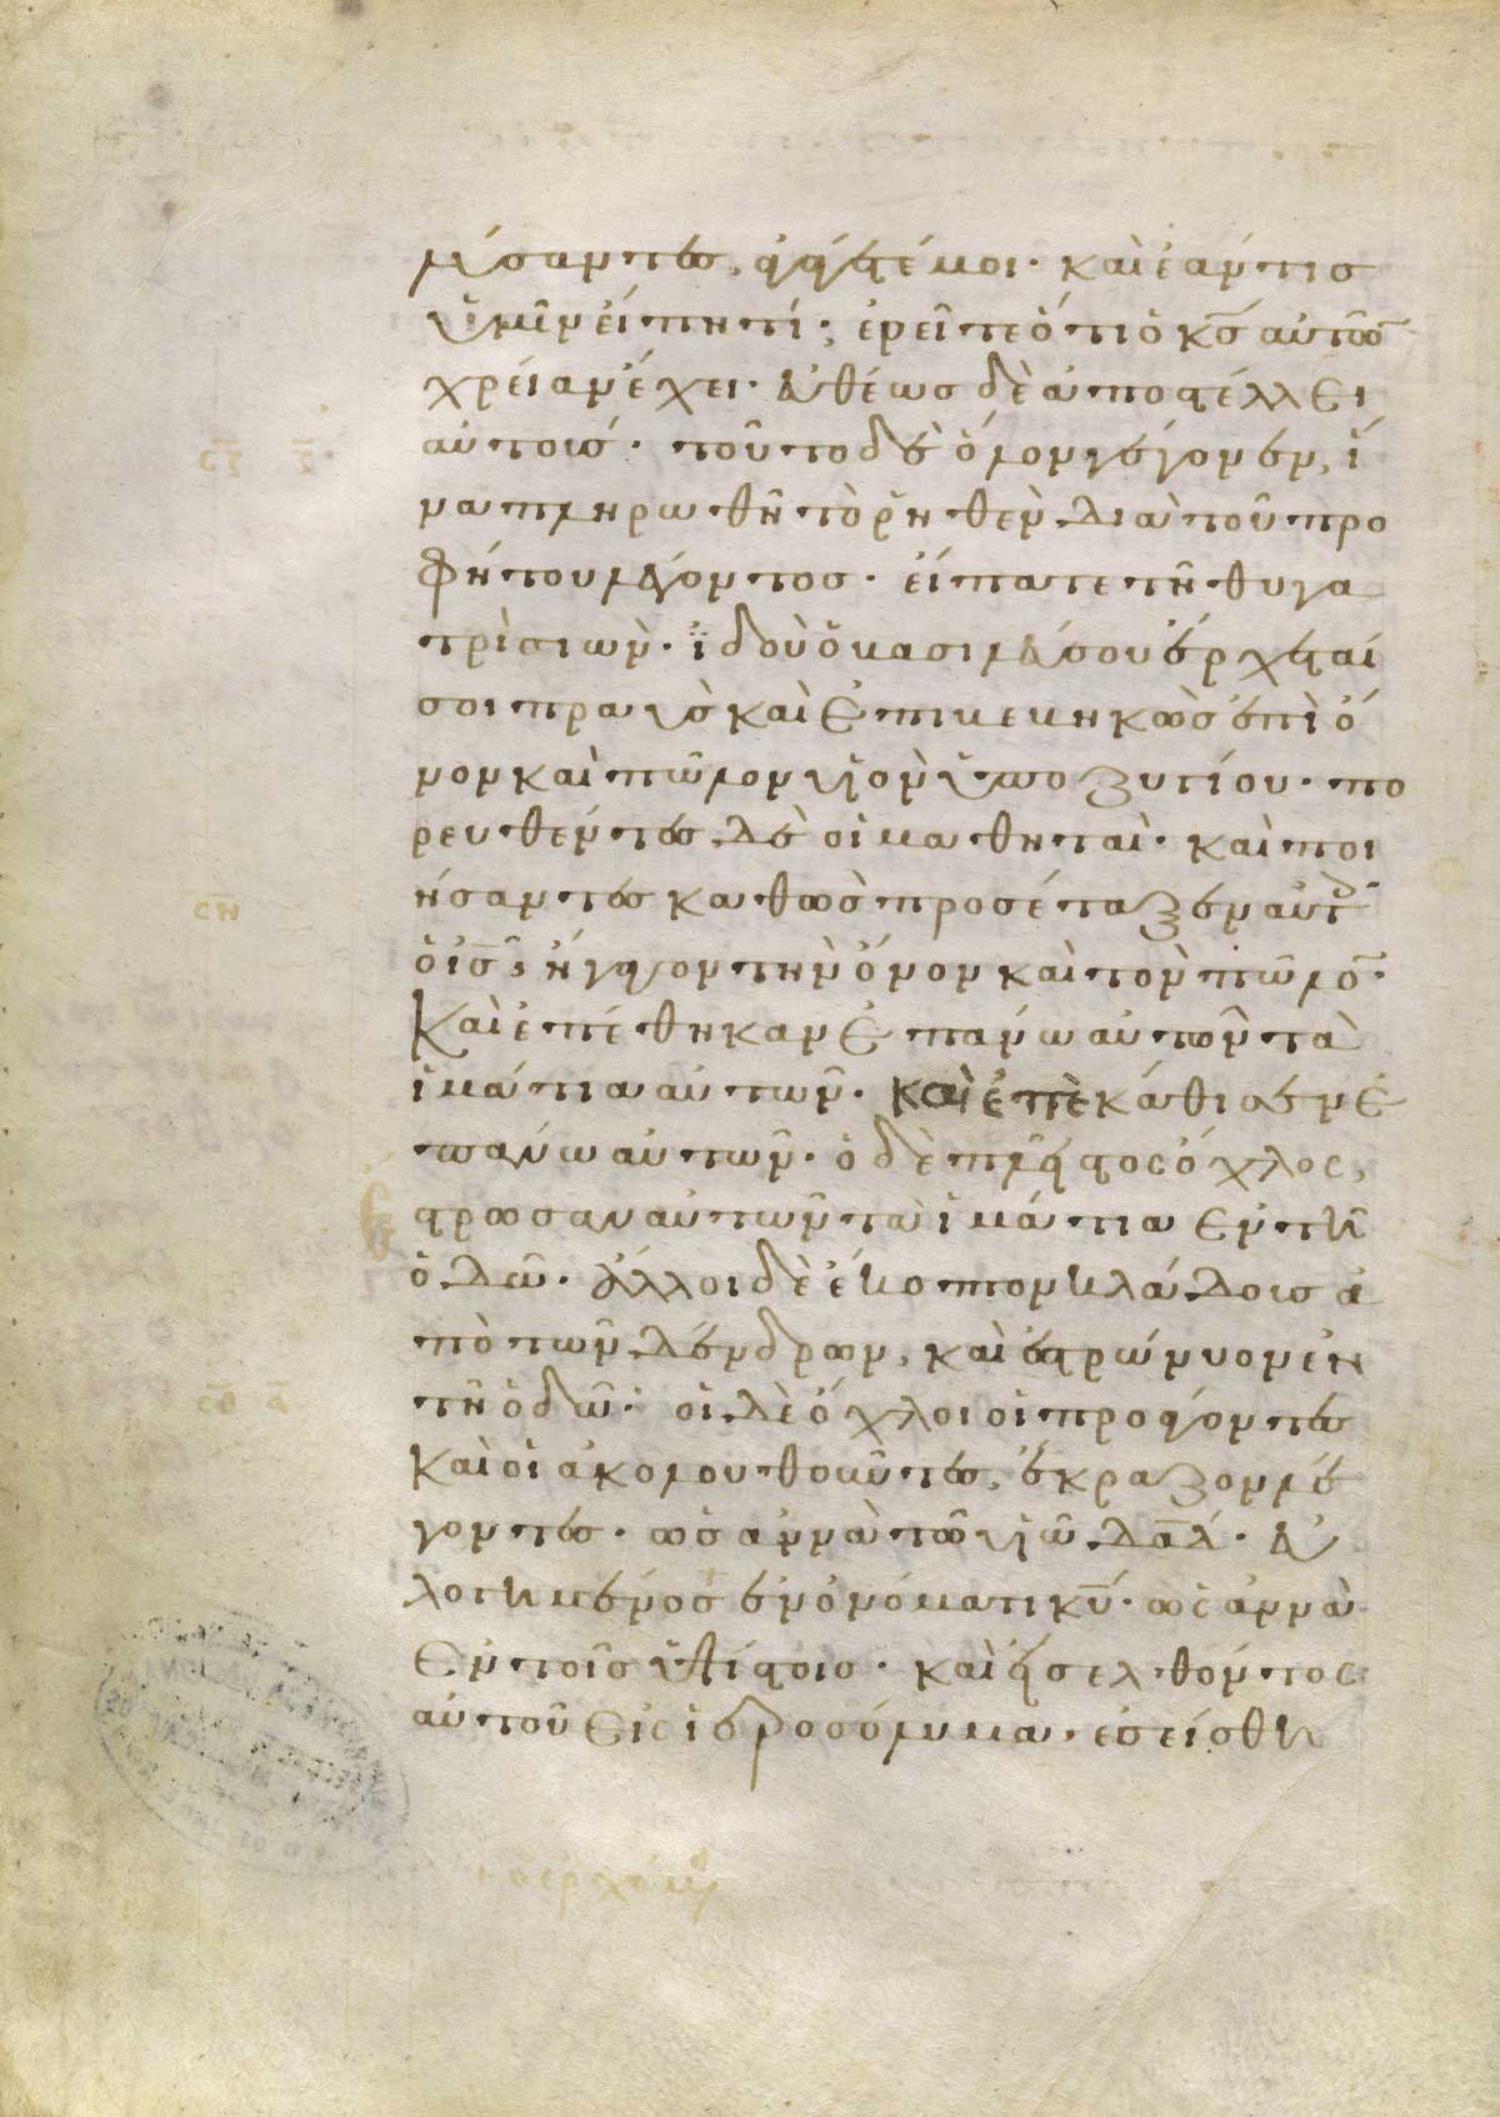 λύσαντες, ἀγάγετέ μοι· καὶ ἐάν τις
ὑμῖν εἴπῃ τί· ἐρεῖτε ὅτι ὁ κ̅ς̅ αὐτῶν
χρείαν ἔχει· εὐθέως δὲ ἀποστέλλει
αὐτούς· τοῦτο δὲ ὅλον γέγονεν, ἵ
να πληρωθῆ τὸ ῥηθὲν διὰ τοῦ προ
φήτου λέγοντος· εἴπατε τῆ θυγα
τρὶ σιὼν· ἰδοὺ ὁ βασιλεύς σου ἔρχεταί
σοι πραῢς καὶ ἐπιβεβηκὼς ἐπὶ ὄ
νον καὶ πῶλον υἱὸν ὑποζυγίου· πο
ρευθέντες δὲ οἱ μαθηταὶ· καὶ ποι
ήσαντες καθὼς προσέταξεν αὐτοῖς
ὁ ι̅ς̅, ἤγαγον τὴν ὄνον καὶ τὸν πῶλον·
Καὶ ἐπέθηκαν ἐπάνω αὐτῶν τὰ
ἱμάτια αὐτῶν· καὶ ἐπεκάθισεν ἐ
πάνω αὐτῶν· ὁ δὲ πλεῖστος ὄχλος,
ἔστρωσαν αὐτῶν τὰ ἱμάτια ἐν τῆ
ὁδῶ· ἄλλοι δὲ ἔκοπτον κλάδους ἀ
πὸ τῶν δένδρων, καὶ ἐστρώννυον ἐν
τῆ ὁδῶ· οἱ δὲ ὄχλοι οἱ προάγοντες
καὶ οἱ ἀκολουθοῦντες, ἔκραζον λέ
γοντες· ὡσαννὰ τῶ υἱῶ δ̅α̅δ̅· εὐ
λογημένος ὁ ἐρχόμενος ἐν ὀνόματι κ̅υ̅· ὡσαννὰ
ἐν τοῖς ὑψίστοις· καὶ εἰσελθόντος
αὐτοῦ εἰς ἱεροσόλυμα· ἐσείσθη